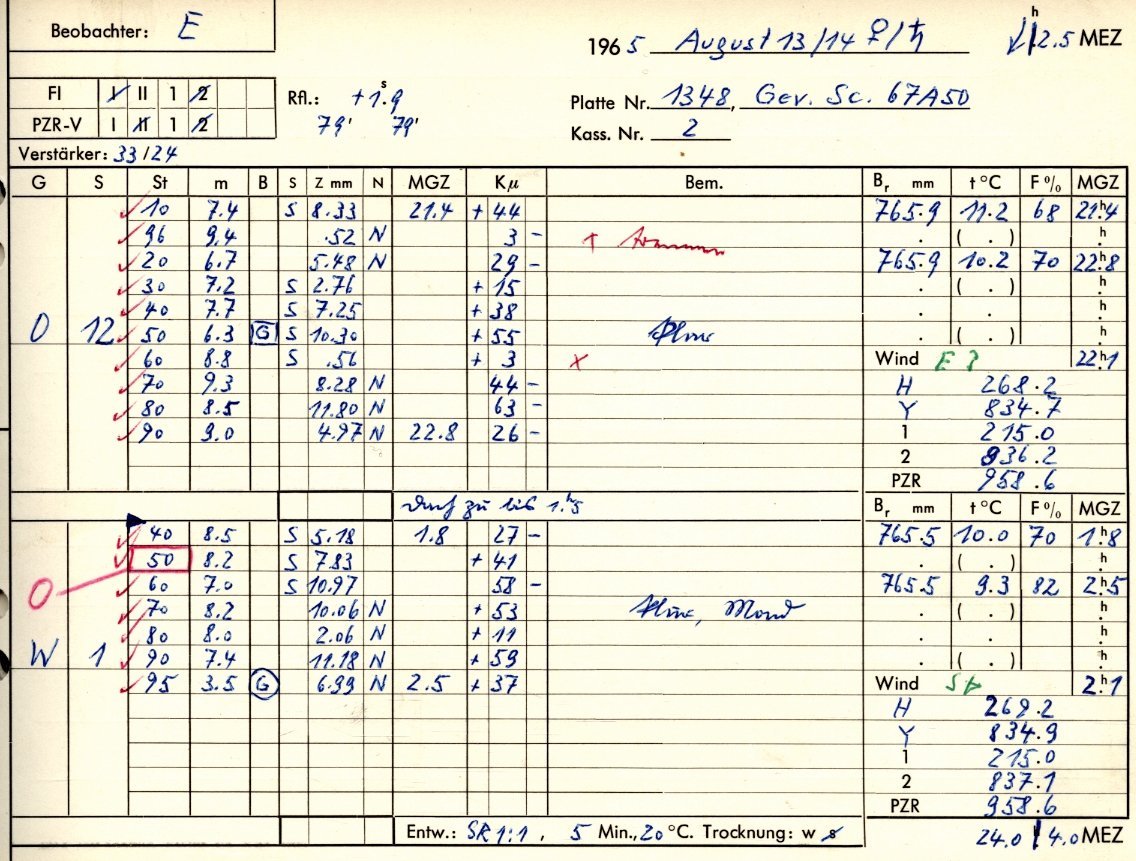 Beobachter: E
1965 August 13/14 ♀/♄ 12.5 h MEZ
FI I II 1 2
PZR-V I II 1 2
Rfl.: +1.9 s
79' 79'
Platte Nr. 1348, Gev. Sc. 67A50
Kass. Nr. 2
Verstärker: 33/24
G S St m B S Z mm N MGZ Kμ Bem. Br mm t °C F % MGZ
10 7.4 S 8.33 21.4 + 44 765.9 11.2 68 21.4 h
96 9.4 .52 N 3 - . ( . ) . h
20 6.7 5.48 N 29 - 765.9 10.2 70 22.8 h
30 7.2 S 2.76 + 15 . ( . ) . h
40 7.7 S 7.25 + 38 . . . h
O 12 50 6.3 G S 10.30 + 55 . ( . ) . h
60 8.8 S .56 + 3 x Wind E ? 22.1 h
70 9.3 8.28 N 44 - H 268.2
80 8.5 11.80 N 63 - Y 834.7
90 9.0 4.97 N 22.8 26 - 1 215.0
2 836.2
PZR 958.6
zu bis 1.5 h Br mm t °C F % MGZ
40 8.5 S 5.18 1.8 27 - 765.5 10.0 70 1.8 h
50 8.2 S 7.83 + 41 . ( . ) . h
O 60 7.0 S 10.97 58 - 765.5 9.3 82 2.5 h
70 8.2 10.06 N + 53 Mond . ( . ) . h
80 8.0 2.06 N + 11 . . . h
W 1 90 7.4 11.18 N + 59 . ( . ) . h
95 3.5 G 6.99 N 2.5 + 37 Wind St 2.1 h
H 269.2
Y 834.9
1 215.0
2 837.1
PZR 958.6
Entw.: SR 1:1, 5 Min., 20 °C. Trocknung: w s 24.0 / 4.0 MEZ